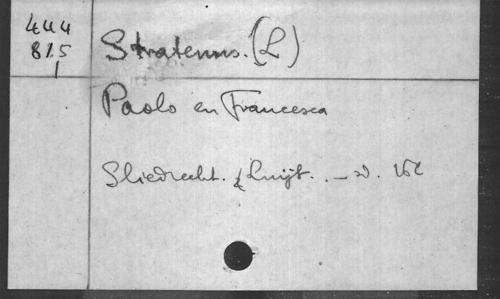 444
815
1
Stratenus. (L)
Paolo en Francesca
Sliedrecht. Luijt. . —